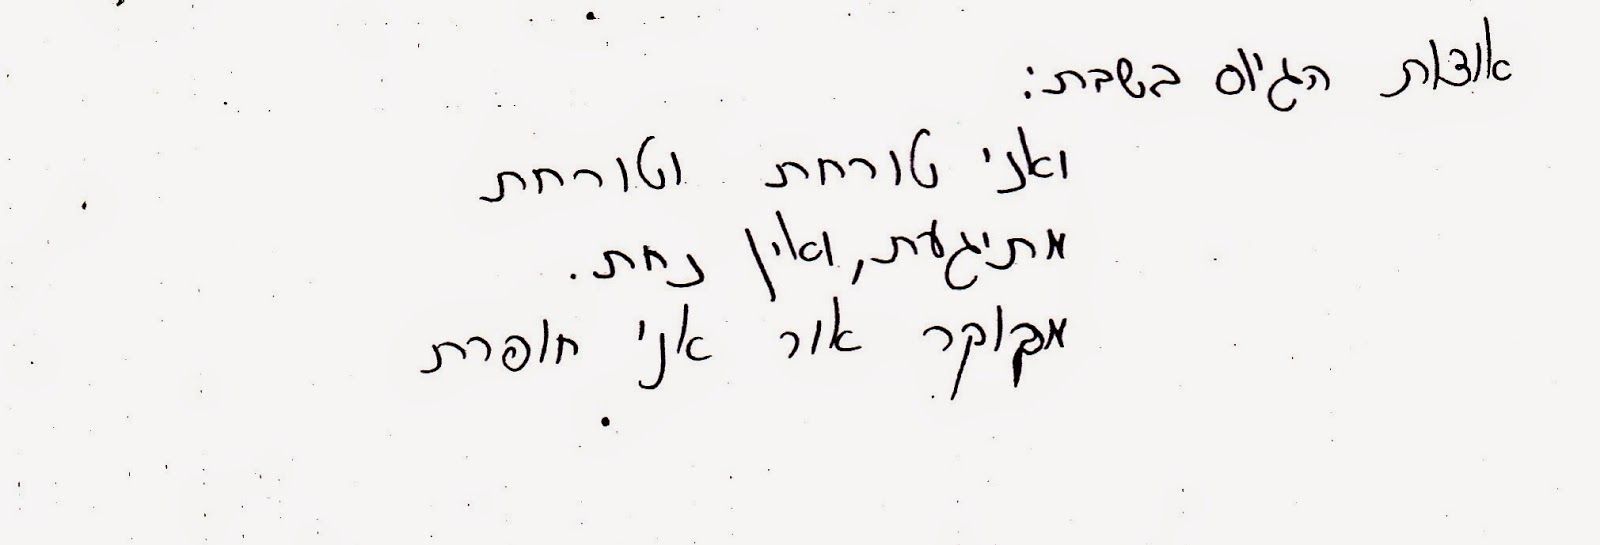 אוצות הגיוס בשבת:
ואני טורחת וטורחת
מתיגעת, ואין נחת.
מבוקר אור אני חופרת